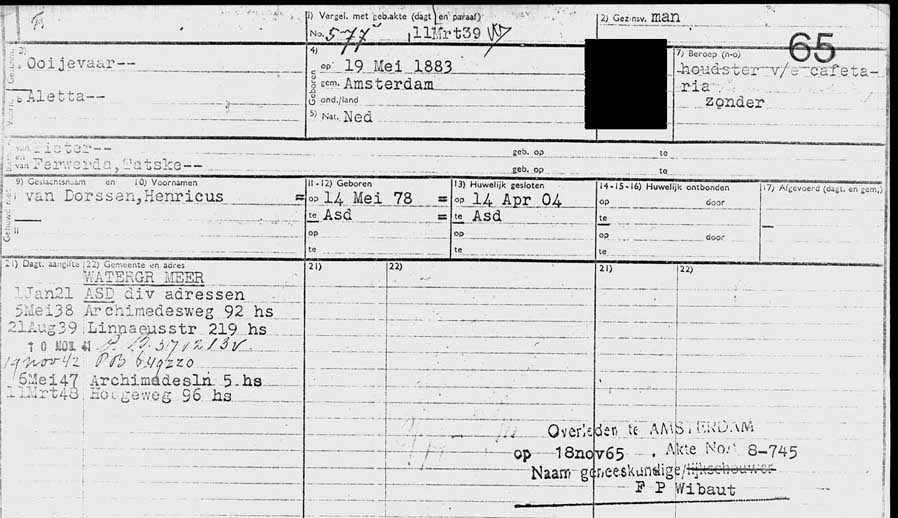 1) Vergel. met geb.akte (dagt en paraaf)
No. 577 11Mrt39
2) Gezinsv. man
65
3)
Ooijevaar--
Aletta--
4)
Geboren
op 19 Mei 1883
gem. Amsterdam
ond./land
5) Nat. Ned
7) Beroep (n-o)
houdster v/e cafeta-
ria
zonder
van Pieter--
geb. op te
en
van Ferwerda, Tatske--
geb. op te
9) Geslachtsnaam en 10) Voornamen
van Dorssen,Henricus =
11
11-12) Geboren
op 14 Mei 78 =
te Asd =
op
te
13) Huwelijk gesloten
op 14 Apr 04
te Asd
op
te
14-15-16) Huwelijk ontbonden
op door
te
op door
te
17) Afgevoerd (dagt. en gem.)
21) Dagt. aangifte 22) Gemeente en adres
21) 22)
21) 22)
WATERGR MEER
1Jan21 ASD div adressen
5Mei38 Archimedesweg 92 hs
21Aug39 Linnaeusstr 219 hs
10 NOV. 41
19 nov 42 PB
6Mei47 Archimedesln 5 hs
11Mrt48 Hogeweg 96 hs
Overleden te AMSTERDAM
op 18nov65 . Akte No. 8-745
Naam geneeskundige/lijkschouwer
F P Wibaut